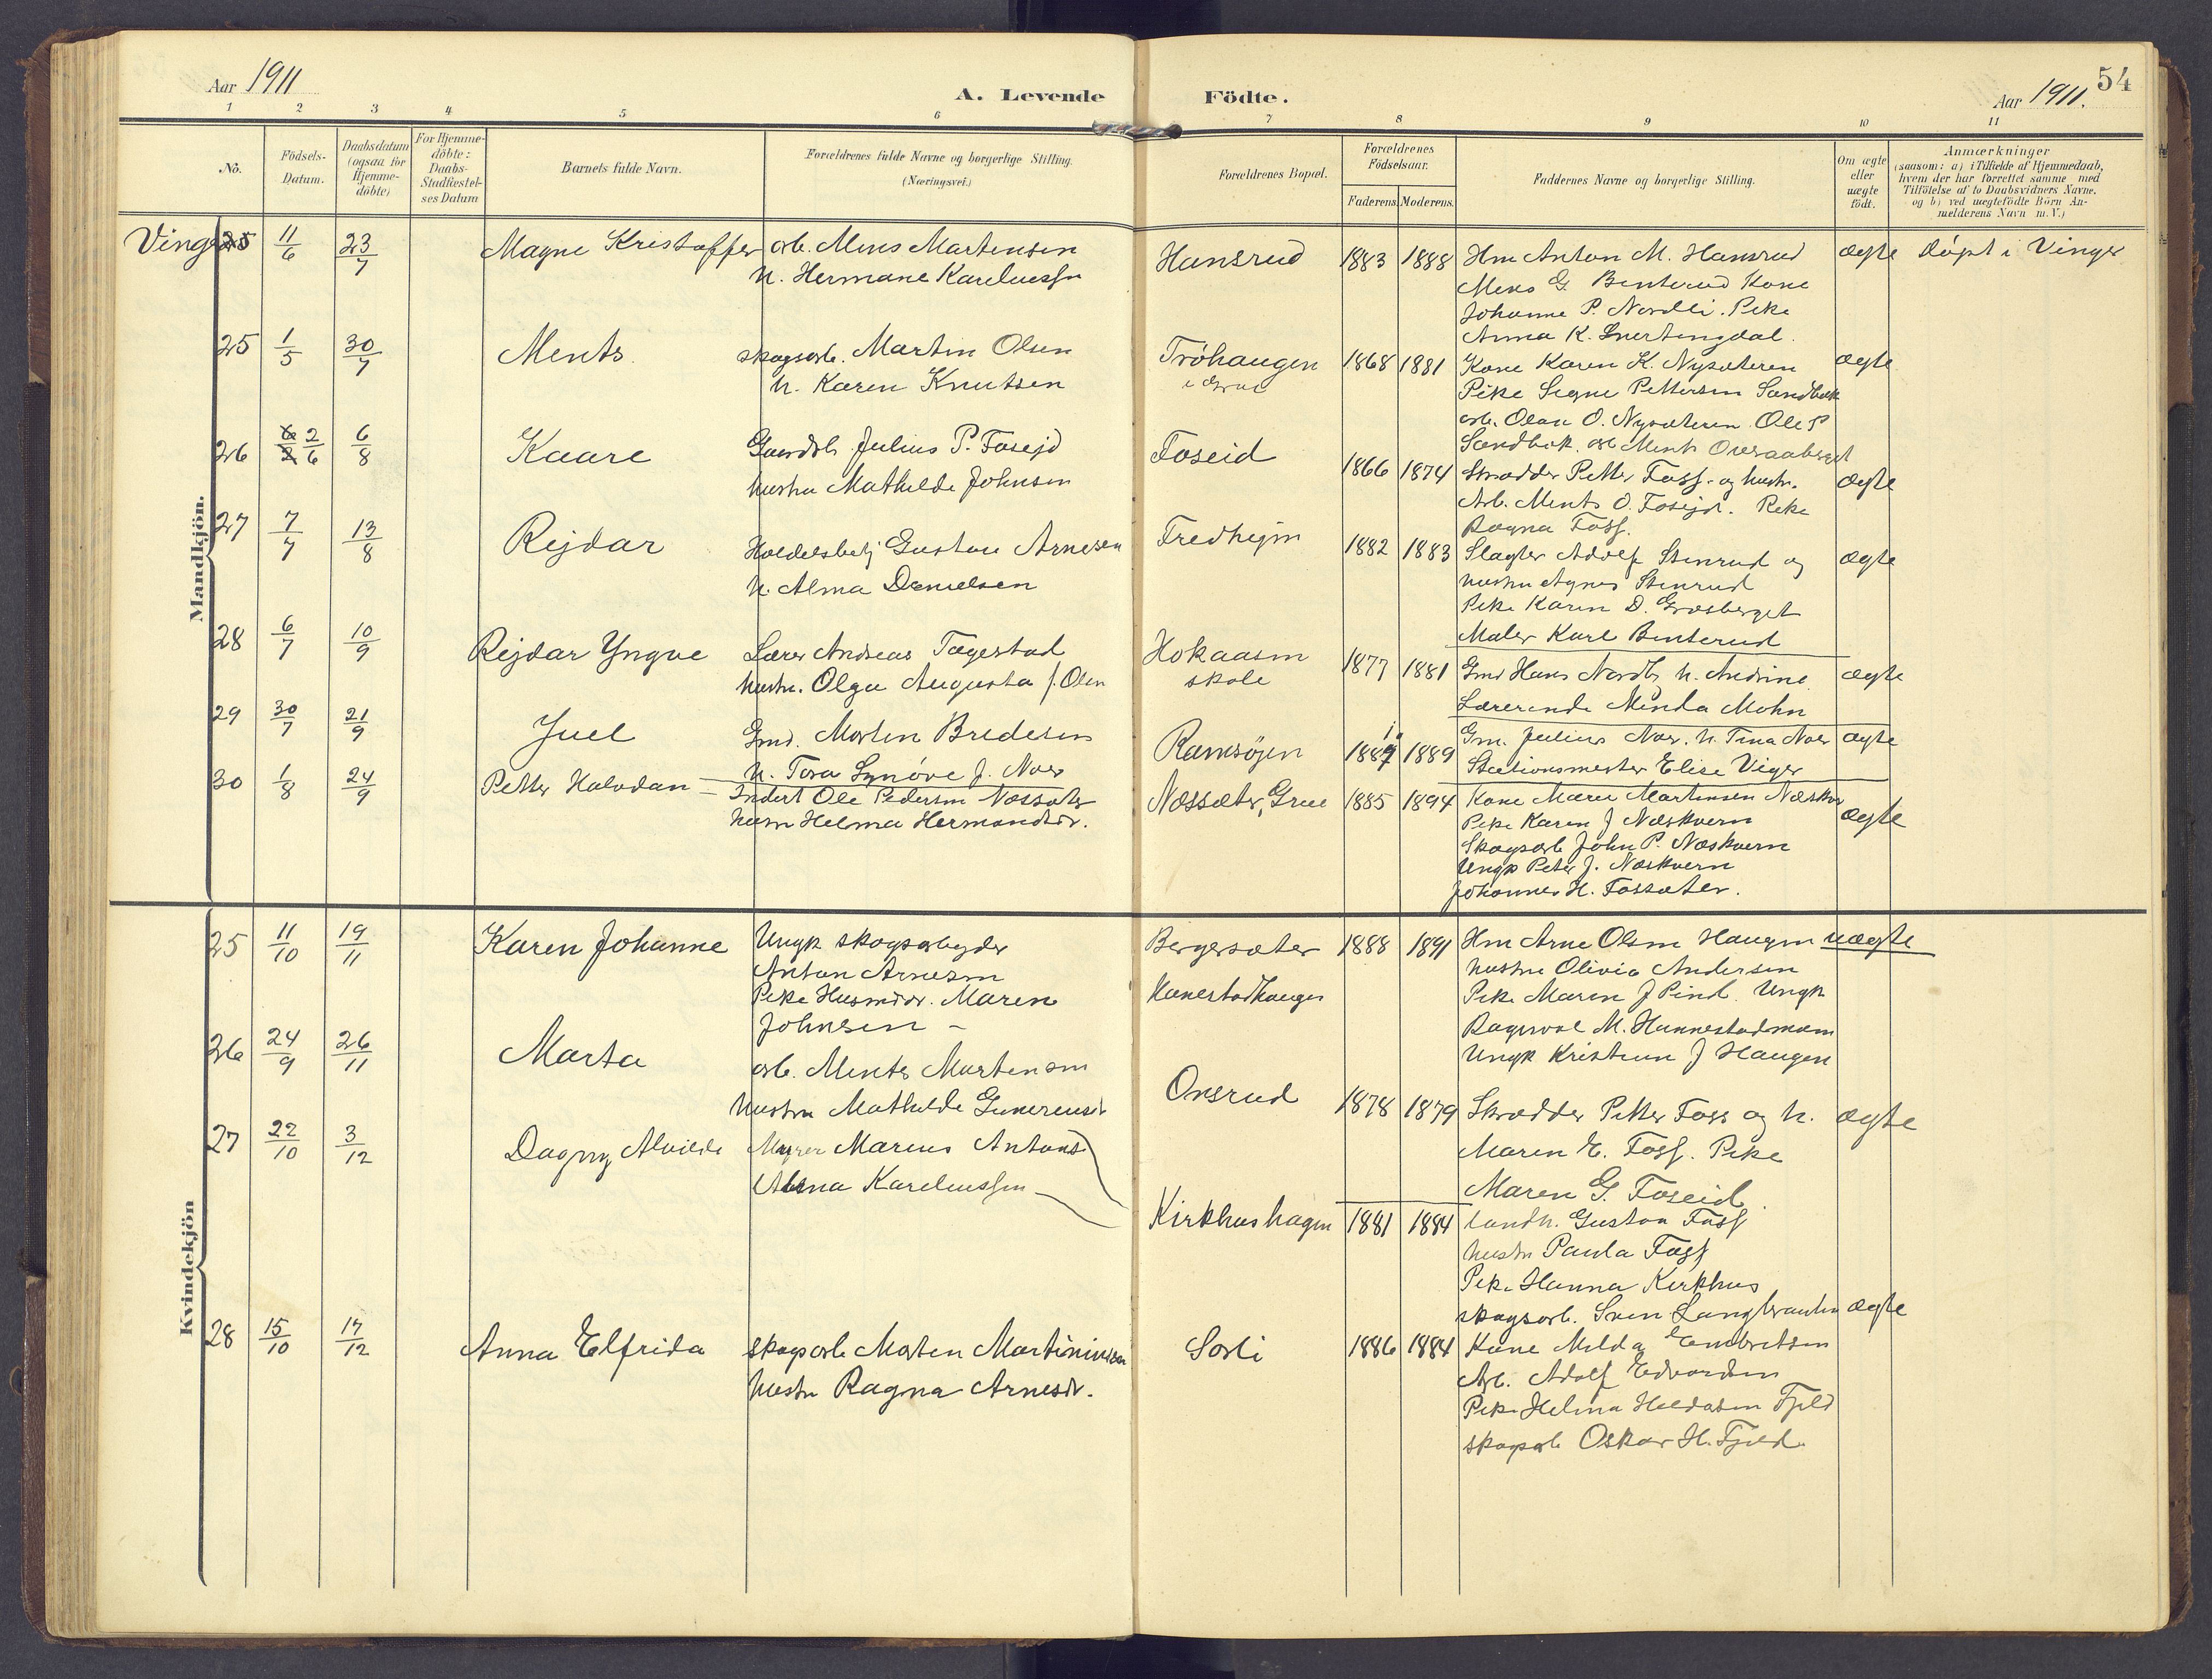 Aar 1911
A. Levende
Födte.
Aar 1911.
54
1 2 3 4 5 6 7 8 9 10 11
No.
Födsels-
Datum.
Daabsdatum
(ogsaa for
Hjemme-
döbte)
For Hjemme-
döbte:
Daabs-
Stadfæstel-
ses Datum
Barnets fulde Navn.
Forældrenes fulde Navne og borgerlige Stilling.
(Næringsvei.)
Forældrenes Bopæl.
Forældrenes
Födselsaar.
Faderens. Moderens.
Faddernes Navne og borgerlige Stilling.
Om ægte
eller
uægte
födt.
Anmærkninger
(saasom: a) i Tilfælde af Hjemmedaab,
hvem der har forrettet samme med
Tilföielse af to Daabsvidners Navne,
og b) ved uægtefödte Börn An-
melderens Navn m. V.)
Mandkjön.
Vinger 25 11/6 23/7 Magne Kristoffer
arb. Mens Martensen
h. Hermane Karelius
Hansrud 1883 1888
Hm Anton M. Hansrud
Mens G Benterud Kone
Johanne P. Nordli. Pike
Anna K. Snertingdal.
ægte döpt i Vinger
25 1/5 30/7 Ments
skogsarb. Martin Olsen
h. Karen Knutsen
Tröhaugen
i Grue
1868 1881
Kone Karen K. Nysæteren
Pike Signe Pettersen Sandbæk
arb. Olav O. Nysæteren Ole P
Sandbæk. arb Ments Overaaberget
ægte
26 6/2 2/6 6/8 Kaare
Gaardbr. Julius P. Foseid
hustru Mathilde Johnsen
Foseid 1866 1874
Skrædder Petter Foss og hustr.
Arb. Ments O. Fosejd. Pike
Ragna Foss.
ægte
27 7/7 13/8 Rejdar
Handelsbetj Gustav Arnesen
h. Alma Danielsen
Fredhejm 1882 1883
Slagter Adolf Stenrud og
hustru Agnes Stenrud
Pike Karen D. Græsberget
Maler Karl Benterud
ægte
28 6/7 10/9 Rejdar Yngve
Lærer Andreas Tagestad
hustr. Olga Augusta f. Olsen
Hokaasen
skole
1877 1881
Gmd Hans Nordli h. Andrine
Lærerinde Minda Mohn
ægte
29 30/7 21/9 Juel
Gmd. Morten Bredesen
h. Tora Synöve J. Noer
Ramsöjen 1889
Gm. Julius Noer. h. Tina Noer
Stationsmester Elise Viger
ægte
30 1/8 24/9 Petter Halvdan
Inderst Ole Pedersen Næssæter
husm Helma Hermandsdr.
Næssæter, Grue 1885 1894
Kone Maren Martinsen Næskvern
Pike Karen J Næskvern
Skogsarb John P. Næskvern
Ungk Peter J. Næskvern
Johannes H. Fossæter.
ægte
Kvindekjön
25 11/10 19/11 Karen Johanne
Ungk skogsarbejder
Anton Arnesen
Pike Husmdr. Maren
Johnsen
Bergersæter
1888 1891
Hm Arne Olsen Haugen
hustru Olivia Andersen
Pike Maren J Pind. Ungk
Ragnvall M. Hunnestadmoen
Ungk Kristian J Haugen
uægte
26 24/9 26/11 Marta
arb. Ments Martensen
hustru Mathilde Gunerius
Onsrud 1878 1879
Skrædder Petter Foss og h.
Maren E. Foss. Pike
Maren G. Foseid
ægte
27 22/10 3/12 Dagny Alvilde
Murer Marius Antons
Alma Karelius
Kirkhushagen 1881 1884
Landh. Gustav Foss
hustr Paula Foss
Pike Hanna Kirkhus
skogsarb. Sven Langbraaten
ægte
28 15/10 17/12 Anna Elfrida
skogsarb Morten Martiniusen
hustr Ragna Arnesdr.
Sorli 1886 1884
Kone Milda Embretsen
Arb. Adolf Edvardsen
Pike Helma Haldosen Fjeld
skogsarb Oskar H. Fjeld.